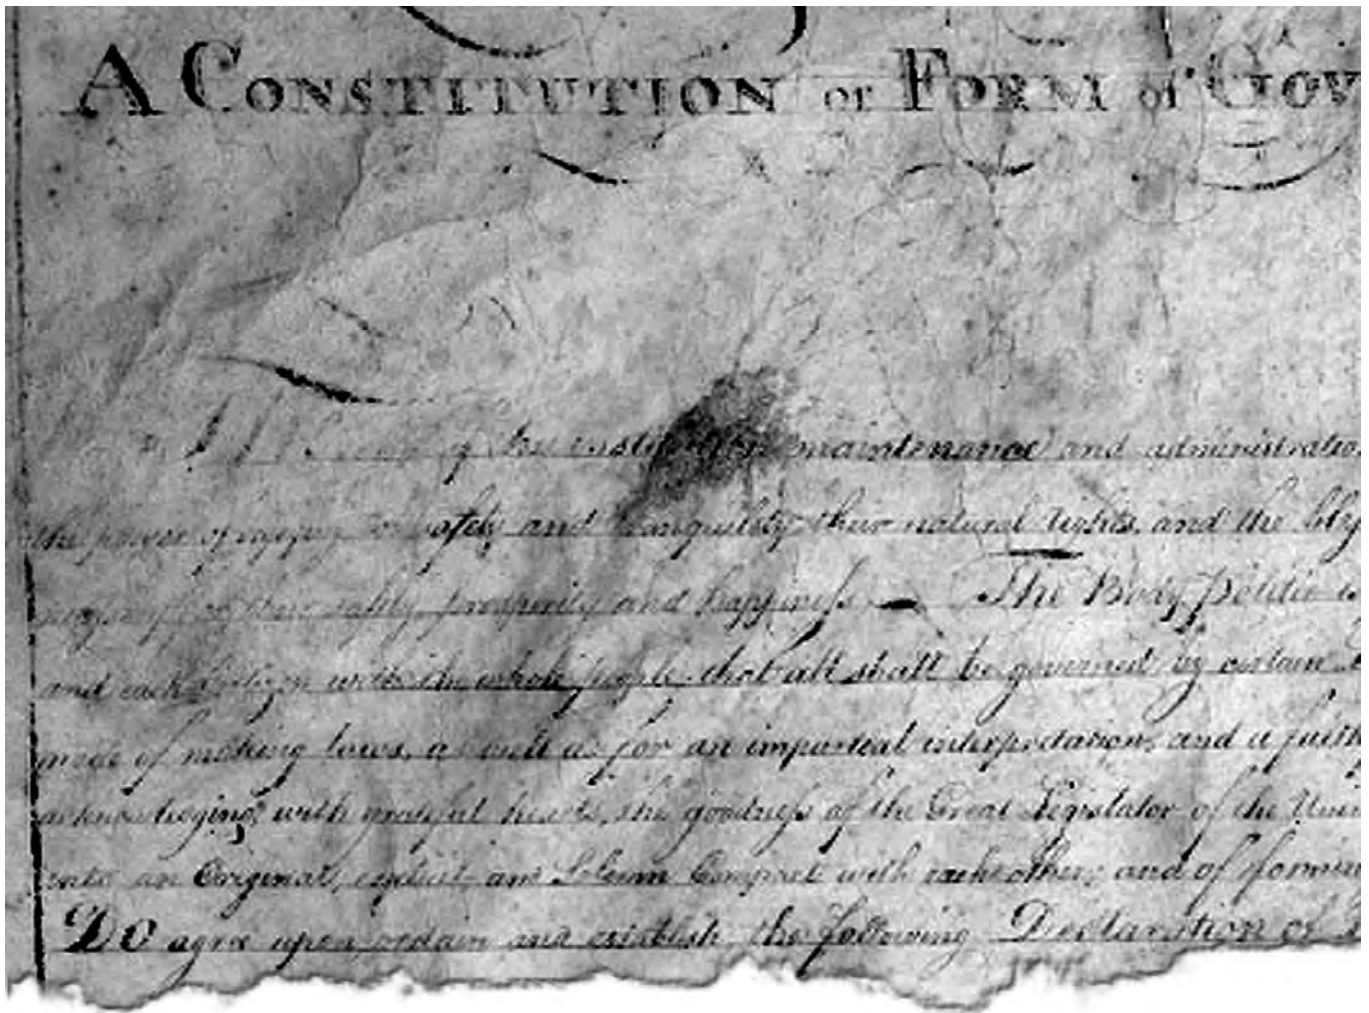 A CONSTITUTION or FORM of GOV
of the institution, maintenance and administration
the power of enjoying in safety and tranquility, their natural rights, and the bless
necessary for their safety, prosperity and happiness. — The Body politic is
and each Citizen with the whole people, that all shall be governed by certain
mode of making laws, as well as for an impartial interpretation, and a faith
acknowledging, with grateful hearts, the goodness of the Great Legislator of the Univ
into an Original, explicit and Solemn Compact with each other; and of forming
DO agree upon, ordain and establish, the following Declaration of